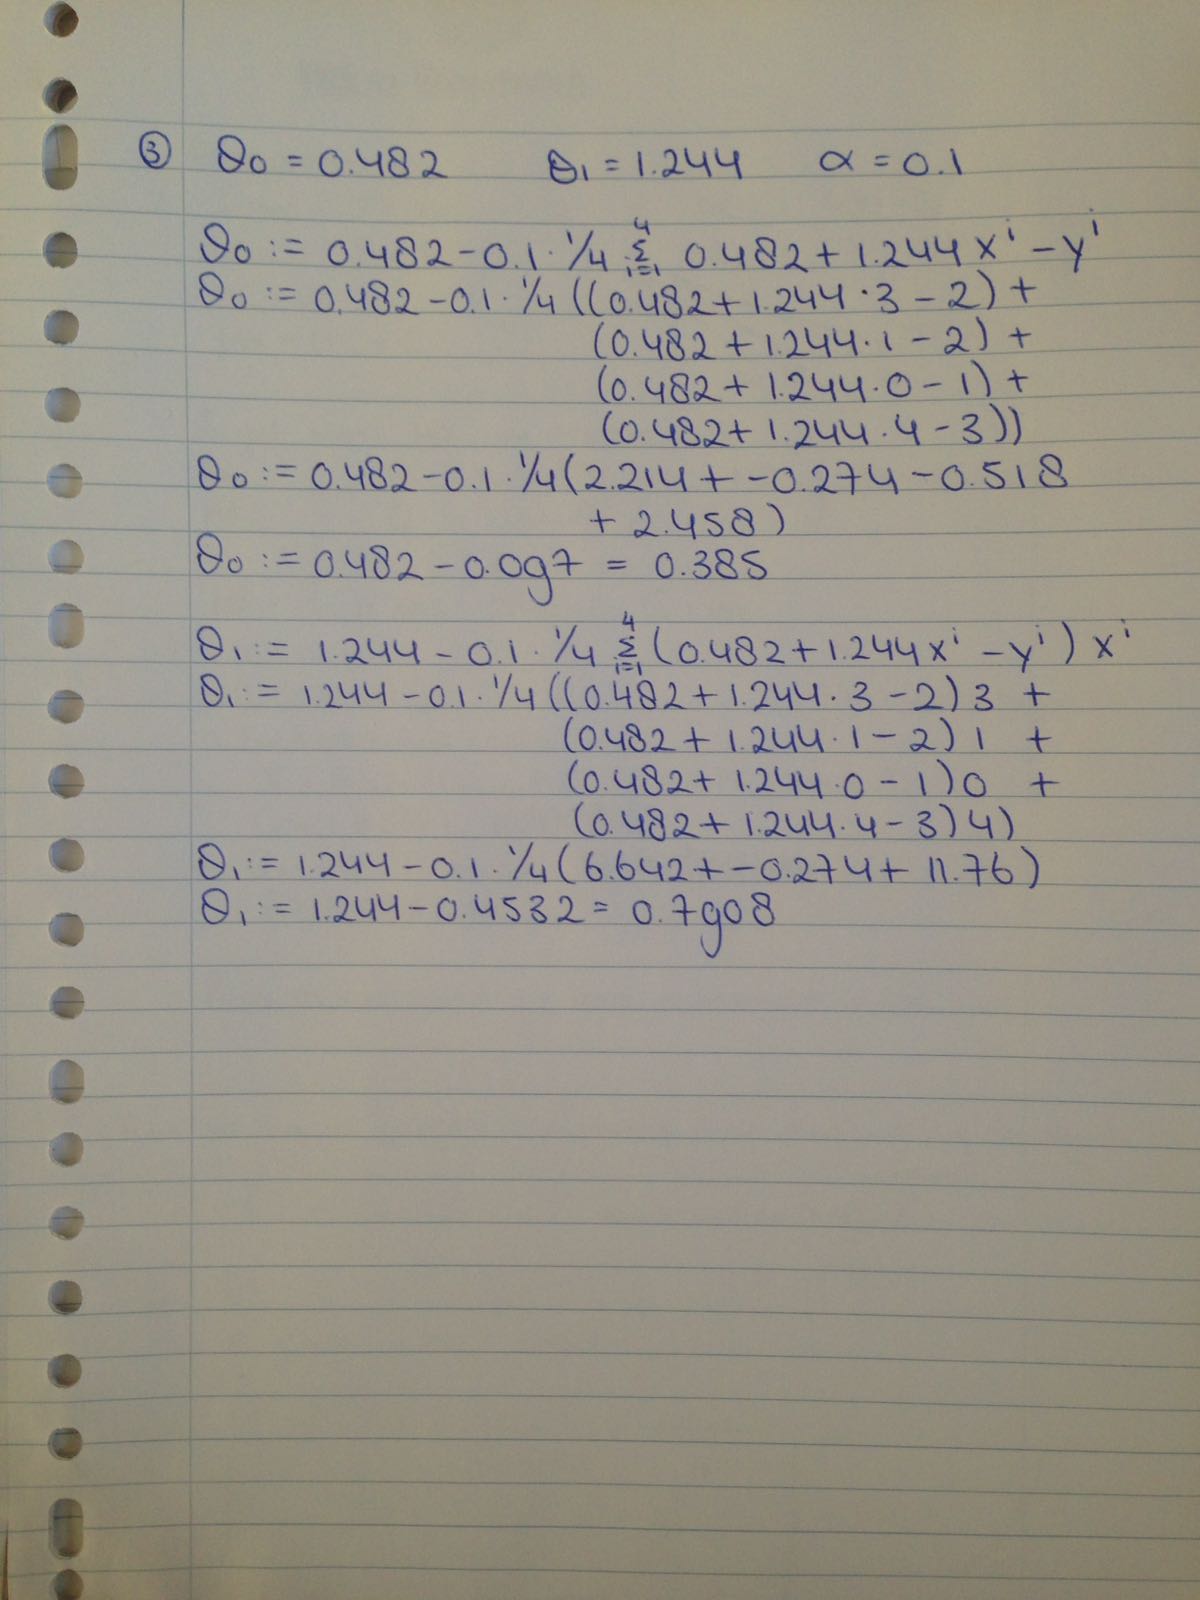 ③ θ₀ = 0.482 θ₁ = 1.244 α = 0.1
θ₀ := 0.482 - 0.1 · 1/4 4 Σ i=1 0.482 + 1.244 xⁱ - yⁱ
θ₀ := 0.482 - 0.1 · 1/4 ((0.482 + 1.244 · 3 - 2) +
(0.482 + 1.244 · 1 - 2) +
(0.482 + 1.244 · 0 - 1) +
(0.482 + 1.244 · 4 - 3))
θ₀ := 0.482 - 0.1 · 1/4 (2.214 + -0.274 - 0.518
+ 2.458)
θ₀ := 0.482 - 0.097 = 0.385
θ₁ := 1.244 - 0.1 · 1/4 4 Σ i=1 (0.482 + 1.244 xⁱ - yⁱ) xⁱ
θ₁ := 1.244 - 0.1 · 1/4 ((0.482 + 1.244 · 3 - 2) 3 +
(0.482 + 1.244 · 1 - 2) 1 +
(0.482 + 1.244 · 0 - 1) 0 +
(0.482 + 1.244 · 4 - 3) 4)
θ₁ := 1.244 - 0.1 · 1/4 (6.642 + -0.274 + 11.76)
θ₁ := 1.244 - 0.4532 = 0.7908